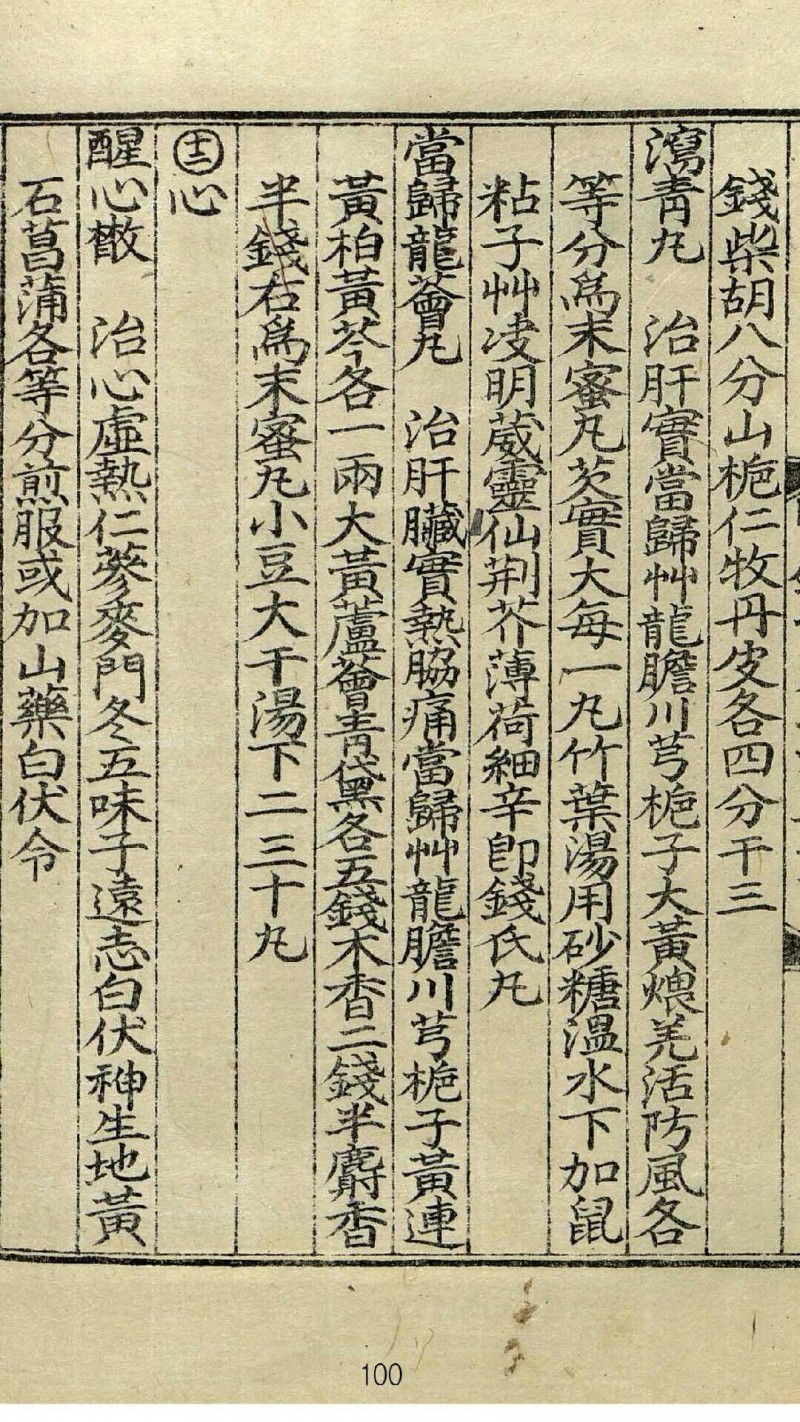 錢柴胡八分山梔仁牧丹皮各四分干三
瀉青丸　治肝實當歸艸龍膽川芎梔子大黃煨羌活防風各
等分爲末蜜丸芡實大每一丸竹葉湯用砂糖溫水下加鼠
粘子艸决明葳靈仙荆芥薄荷細辛卽錢氏丸
當歸龍薈丸　治肝臟實熱脇痛當歸艸龍膽川芎梔子黃連
黃柏黃芩各一兩大黃蘆薈靑黛各五錢木香二錢半麝香
半錢右爲末蜜丸小豆大干湯下二三十丸
㊉二心
醒心散　治心虛熱仁蔘麥門冬五味子遠志白伏神生地黃
石菖蒲各等分煎服或加山藥白伏令
100